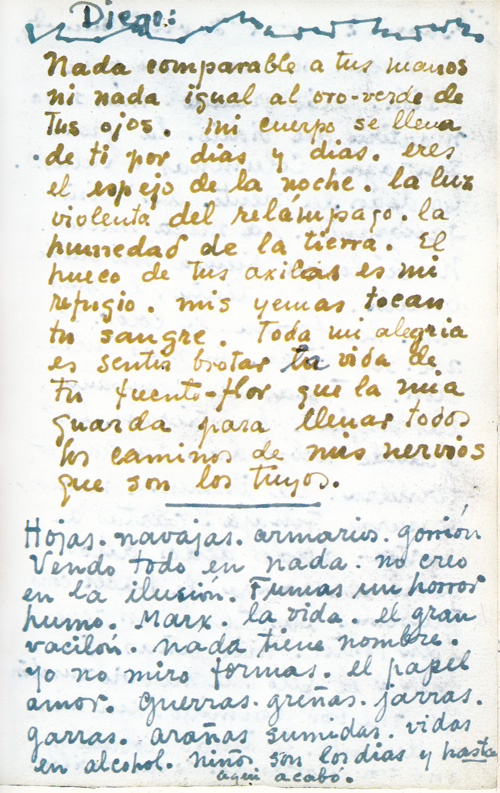 Diego:
Nada comparable a tus manos
ni nada igual al oro-verde de
tus ojos. mi cuerpo se llena
de ti por dias y dias. eres
el espejo de la noche. la luz
violenta del relámpago. la
humedad de la tierra. El
hueco de tus axilas es mi
refugio. mis yemas tocan
tu sangre. Toda mi alegria
es sentir brotar la vida de
tu fuente-flor que la mia
guarda para llenar todos
los caminos de mis nervios
que son los tuyos.
Hojas. navajas. armarios. gorrión
Vendo todo en nada. no creo
en la ilusión. Fumas un horror
humo. Marx. la vida. el gran
vacilón. nada tiene nombre.
yo no miro formas. el papel
amor. guerras. greñas. jarras.
garras. aranas sumidas. vidas
en alcohol. niños son los dias y hasta
aqui acabó.